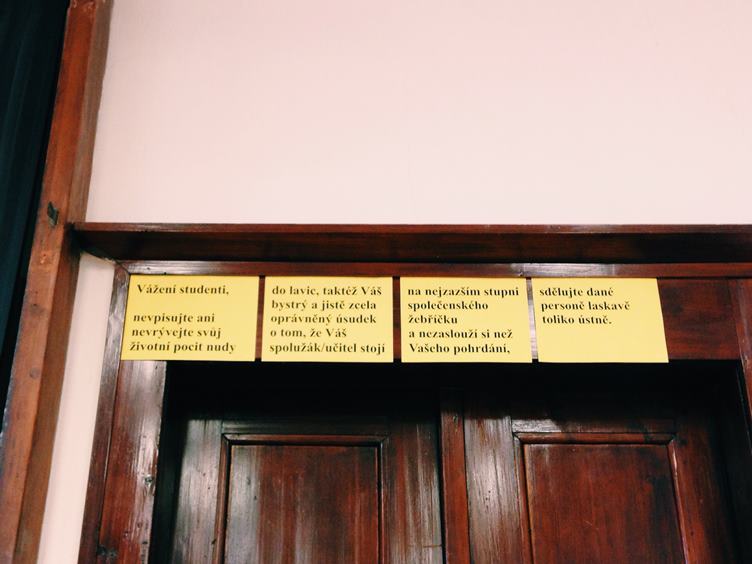 Vážení studenti,
nevpisujte ani
nevrývejte svůj
životní pocit nudy
do lavic, taktéž Váš
bystrý a jistě zcela
oprávněný úsudek
o tom, že Váš
spolužák/učitel stojí
na nejzazším stupni
společenského
žebříčku
a nezaslouží si než
Vašeho pohrdání,
sdělujte dané
personě laskavě
toliko ústně.